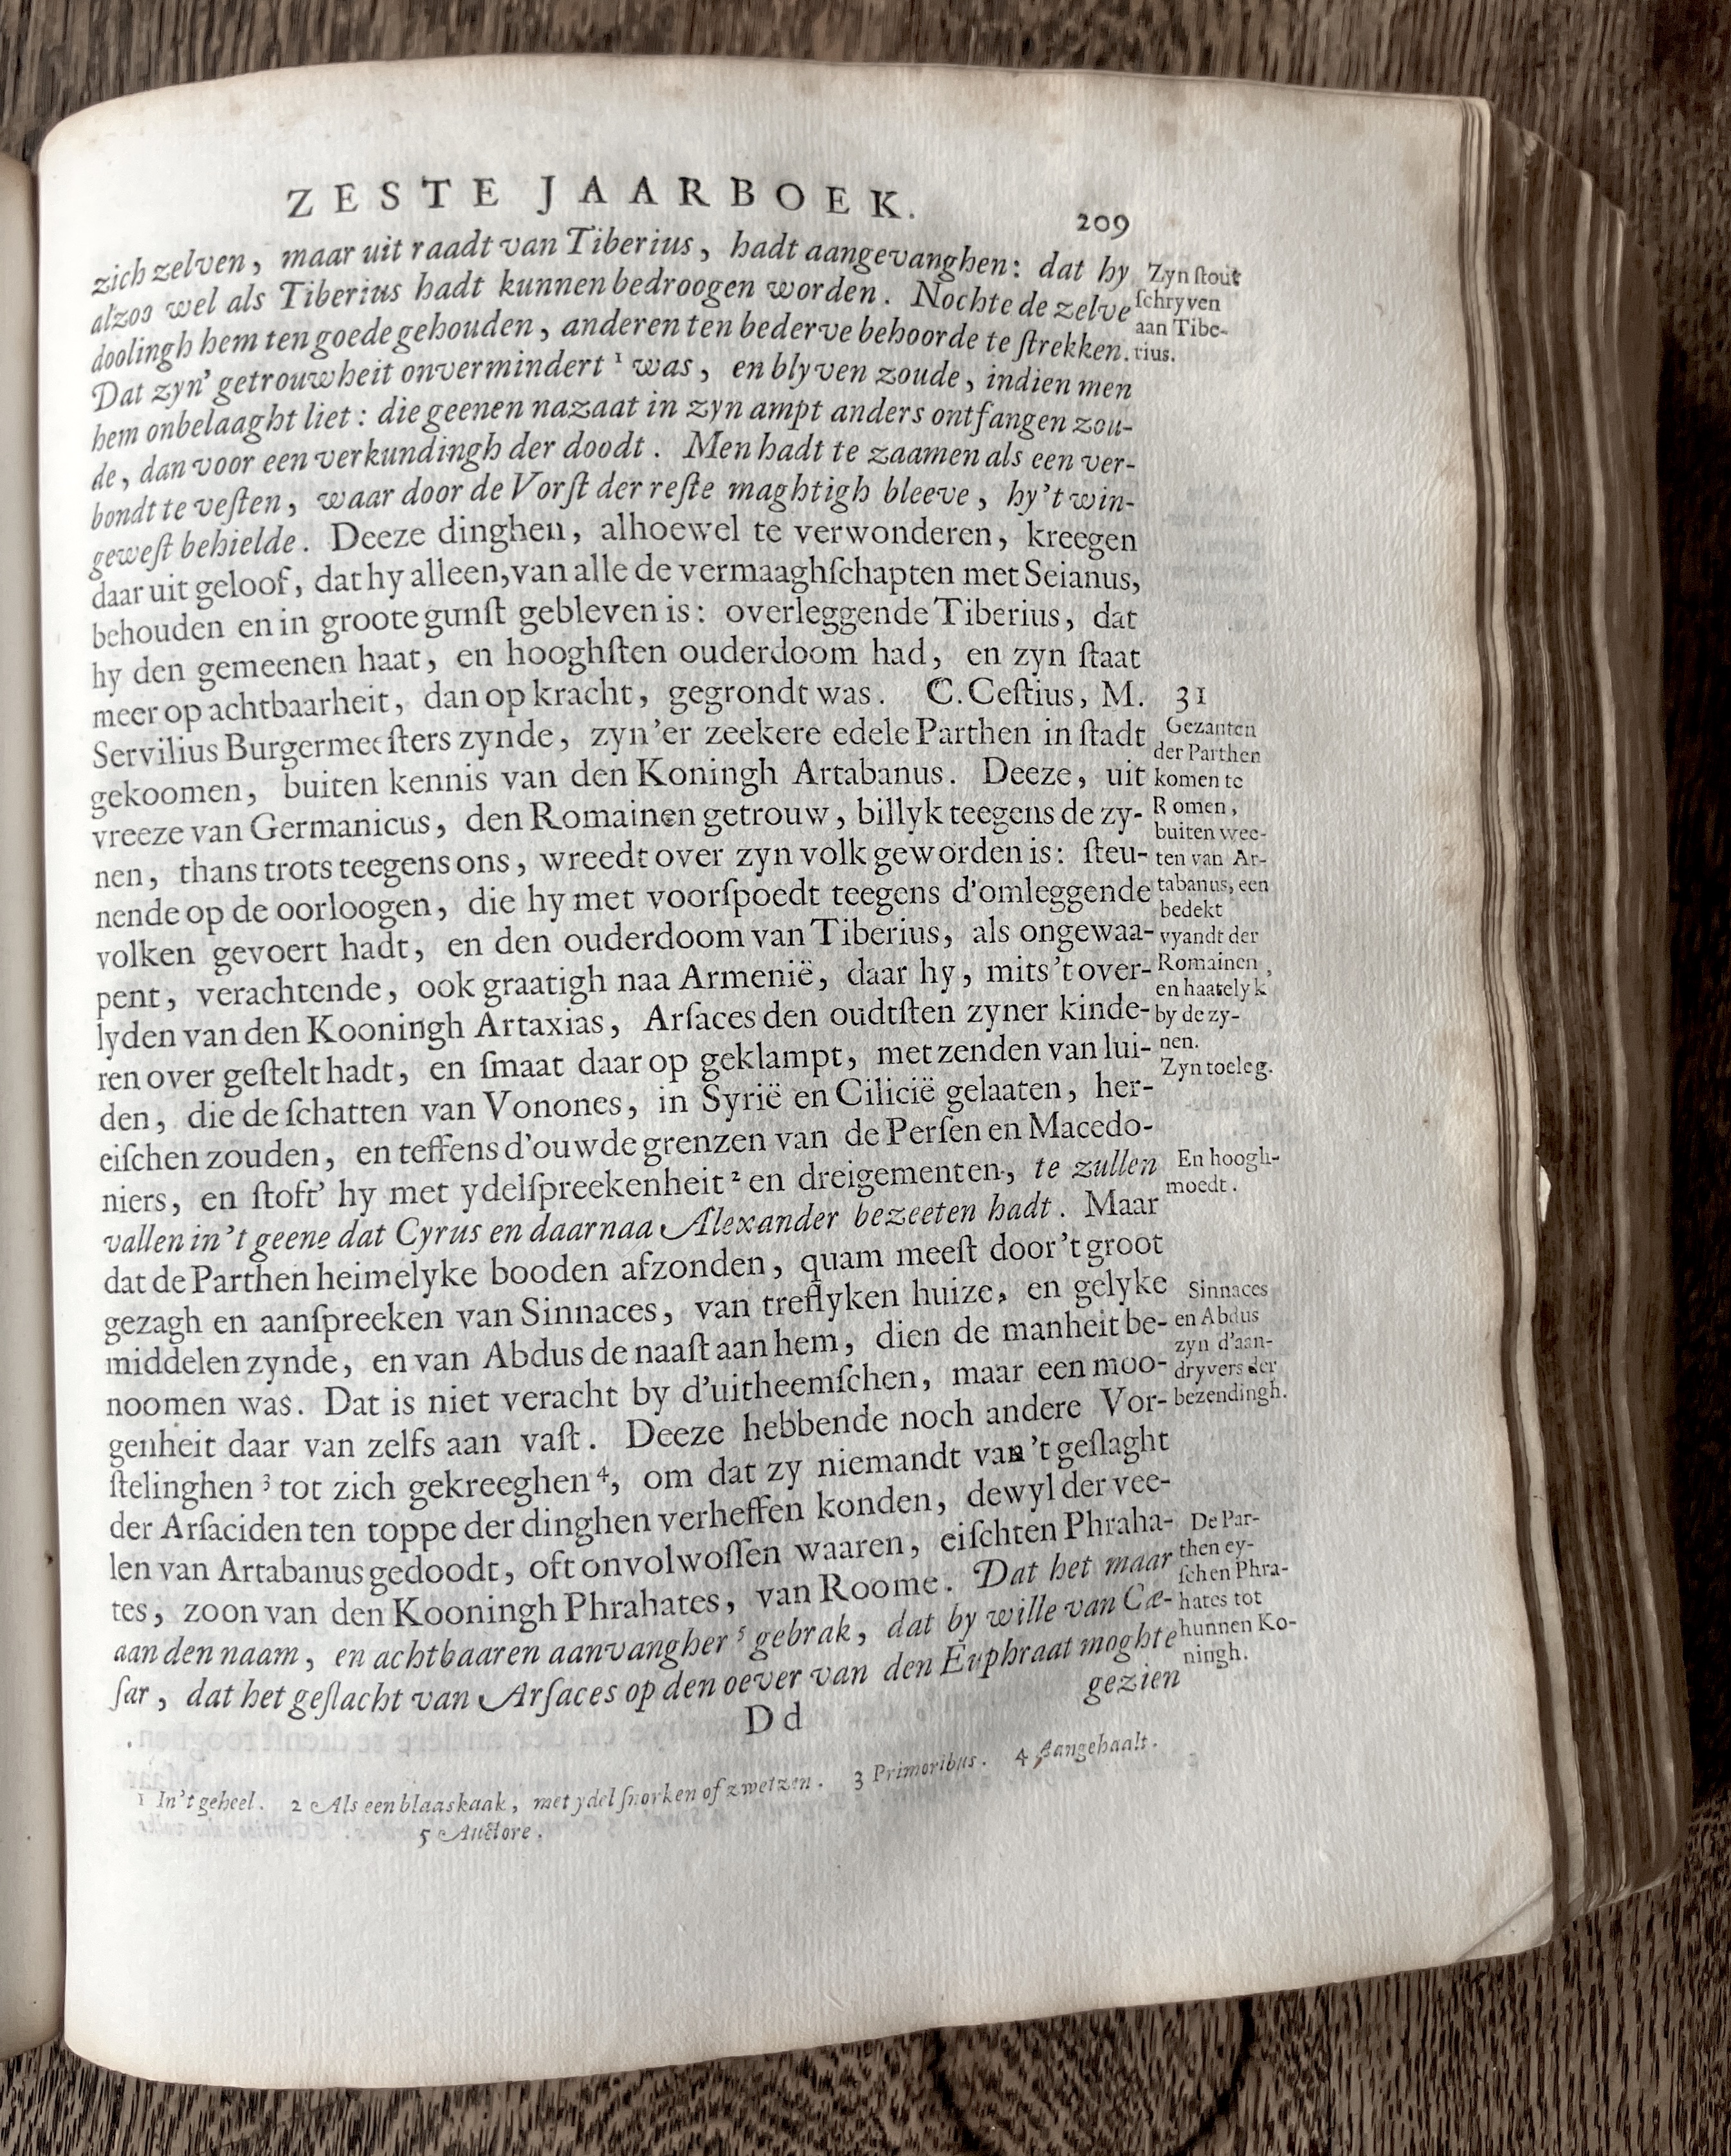 ZESTE JAARBOEK.
209
zich zelven, maar uit raadt van Tiberius, hadt aangevanghen: dat hy
alzoo wel als Tiberius hadt kunnen bedroogen worden. Nochte de zelve
doolingh hem ten goede gehouden, anderen ten bederve behoorde te ſtrekken.
Dat zyn' getrouwheit onvermindert ¹ was, en blyven zoude, indien men
hem onbelaaght liet: die geenen nazaat in zyn ampt anders ontfangen zou-
de, dan voor een verkundingh der doodt. Men hadt te zaamen als een ver-
bondt te veſten, waar door de Vorſt der reſte maghtigh bleeve, hy 't win-
geweſt behielde. Deeze dinghen, alhoewel te verwonderen, kreegen
daar uit geloof, dat hy alleen, van alle de vermaaghſchapten met Seianus,
behouden en in groote gunſt gebleven is: overleggende Tiberius, dat
hy den gemeenen haat, en hooghſten ouderdoom had, en zyn ſtaat
meer op achtbaarheit, dan op kracht, gegrondt was. C. Ceſtius, M.
Servilius Burgermeeſters zynde, zyn'er zeekere edele Parthen in ſtadt
gekoomen, buiten kennis van den Koningh Artabanus. Deeze, uit
vreeze van Germanicus, den Romainen getrouw, billyk teegens de zy-
nen, thans trots teegens ons, wreedt over zyn volk geworden is: ſteu-
nende op de oorloogen, die hy met voorſpoedt teegens d'omleggende
volken gevoert hadt, en den ouderdoom van Tiberius, als ongewaa-
pent, verachtende, ook graatigh naa Armenië, daar hy, mits 't over-
lyden van den Kooningh Artaxias, Arſaces den oudtſten zyner kinde-
ren over geſtelt hadt, en ſmaat daar op geklampt, met zenden van lui-
den, die de ſchatten van Vonones, in Syrië en Cilicië gelaaten, her-
eiſchen zouden, en teffens d'ouwde grenzen van de Perſen en Macedo-
niers, en ſtoft' hy met ydelſpreekenheit ² en dreigementen, te zullen
vallen in 't geene dat Cyrus en daarnaa Alexander bezeeten hadt. Maar
dat de Parthen heimelyke booden afzonden, quam meeſt door 't groot
gezagh en aanſpreeken van Sinnaces, van treflyken huize, en gelyke
middelen zynde, en van Abdus de naaſt aan hem, dien de manheit be-
noomen was. Dat is niet veracht by d'uitheemſchen, maar een moo-
genheit daar van zelfs aan vaſt. Deeze hebbende noch andere Vor-
ſtelinghen ³ tot zich gekreeghen ⁴, om dat zy niemandt van 't geſlaght
der Arſaciden ten toppe der dinghen verheffen konden, dewyl der vee-
len van Artabanus gedoodt, oft onvolwoſſen waaren, eiſchten Phraha-
tes, zoon van den Kooningh Phrahates, van Roome. Dat het maar
aan den naam, en achtbaaren aanvangher ⁵ gebrak, dat by wille van Cæ-
ſar, dat het geſlacht van Arſaces op den oever van den Euphraat moghte
Dd
gezien
Zyn ſtout
ſchryven
aan Tibe-
rius.
31
Gezanten
der Parthen
komen te
Romen,
buiten wee-
ten van Ar-
tabanus, een
bedekt
vyandt der
Romainen,
en haatelyk
by de zy-
nen.
Zyn toeleg.
En hoogh-
moedt.
Sinnaces
en Abdus
zyn d'aan-
dryvers der
bezendingh.
De Par-
then ey-
ſchen Phra-
hates tot
hunnen Ko-
ningh.
1 In 't geheel. 2 Als een blaaskaak, met ydel ſnorken of zwetzen. 3 Primoribus. 4 Aangehaalt.
5 Auctore.